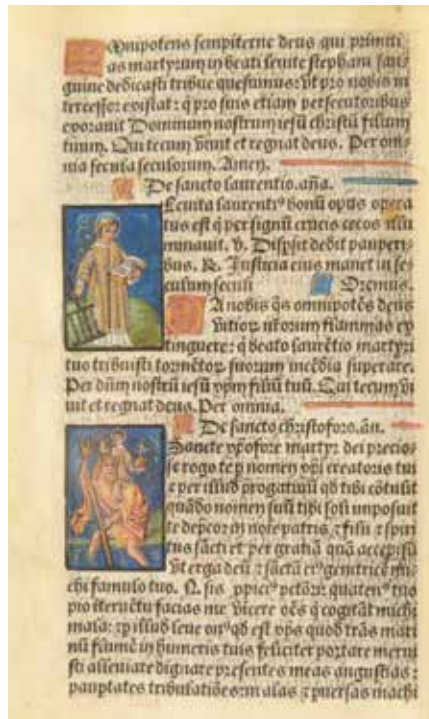 Omnipotens sempiterne deus qui primiti
as martyrum in beati levite stephani san
guine dedicasti tribue quesumus: vt pro nobis in
tercessor existat: q̄ pro suis etiam persecutoribus
exoravit Dominum nostrum iesū christū filium
tuum. Qui tecum vivit et regnat deus. Per om
nia secula seculorum. Amen.
De sancto laurentio. aña.
Levita laurentiꝰ bonū opus opera
tus est q̄ per signū crucis cecos illu
minauit. v. Dispsit dedit pauperi
bus. R. Justicia eius manet in se
culum seculi Oremus.
DA nobis q̄s omnipotēs deus
vitioꝝ nr̄orum flammas ex
tinguere: q̄ beato laurētio martyri
tuo tribuisti tormētoꝝ suorum incēdia superare.
Per dūm nostrū iesū xpm filiū tuū. Qui tecum vi
uit et regnat deus. Per omnia.
De sancto christoforo. añ.
Sancte xpofore martyr dei precio
se rogo te ꝑ nomen xpi creatoris tui
⁊ per illud ꝓgatiuū qd tibi cōtulit
quādo nomen suū tibi soli imposuit
te dep̄cor in noīe patris ⁊ filii ⁊ spiri
tus sācti et per gratiā quā accepisti
vt erga deū ⁊ sāctā eiꝰ genitricē mi
chi famulo tuo. N. sis ꝓpiciꝰ
facias me vīcere oēs q̄ cogitāt michi
mala: ⁊ ꝑ illud leue onꝰ qd est xps quod trās mari
nū flumē in humeris tuis feliciter portare merui
sti alleuiare dignare presentes meas angustias:
paup̄tates tribulatiōes malas ⁊ ꝑuersas machi